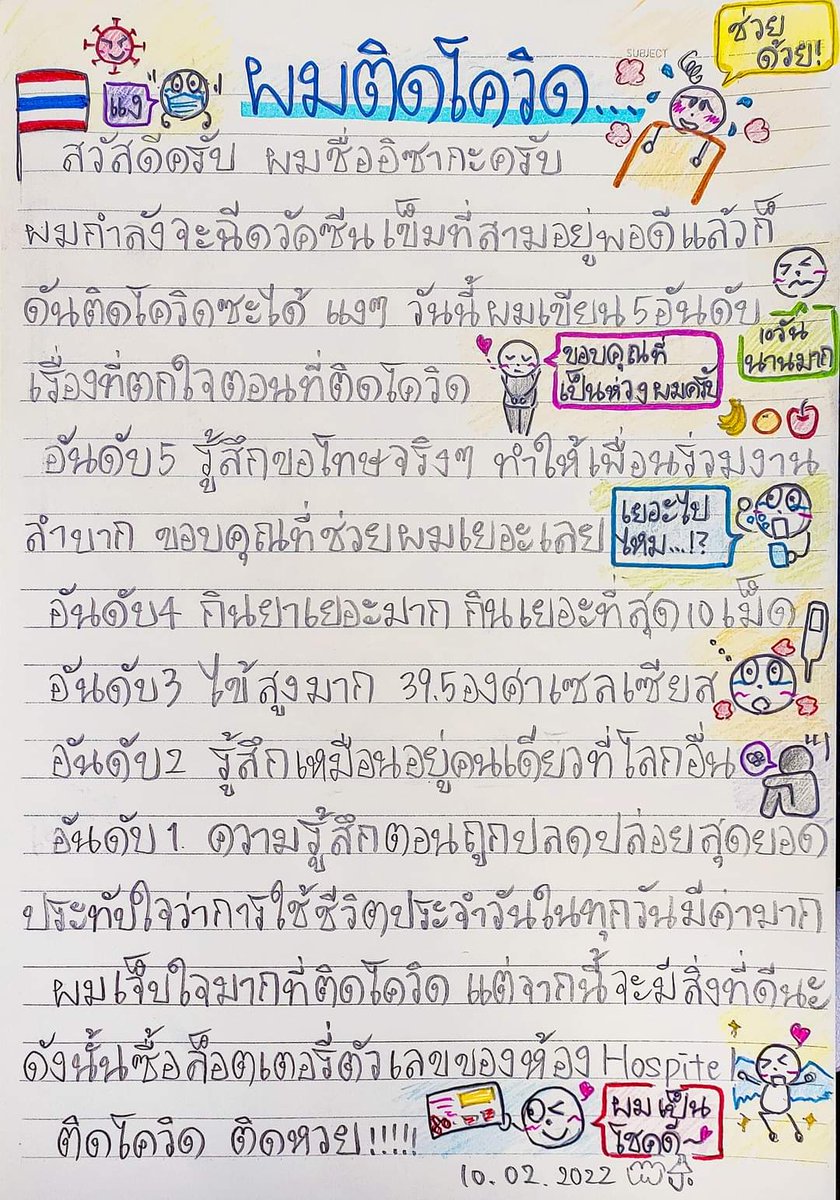 SUBJECT
ช่วย
ด้วย!
แง
ผมติดโควิด...
สวัสดีครับ ผมชื่ออิซากะครับ
ผมกำลังจะฉีดวัคซีนเข็มที่สามอยู่พอดีแล้วก็
ดันติดโควิดซะได้ แงๆ วันนี้ผมเขียน 5 อันดับ
10 วัน
นานมาก
เรื่องที่ตกใจตอนที่ติดโควิด
ขอบคุณที่
เป็นห่วงผมครับ
อันดับ 5 รู้สึกขอโทษจริงๆ ทำให้เพื่อนร่วมงาน
ลำบาก ขอบคุณที่ช่วยผมเยอะเลย
เยอะไป
ไหม...!?
อันดับ 4 กินยาเยอะมาก กินเยอะที่สุด 10 เม็ด
อันดับ 3 ไข้สูงมาก 39.5 องศาเซลเซียส
อันดับ 2 รู้สึกเหมือนอยู่คนเดียวที่โลกอื่น
อันดับ 1. ความรู้สึกตอนถูกปลดปล่อยสุดยอด
ประทับใจว่าการใช้ชีวิตประจำวันในทุกวันมีค่ามาก
ผมเจ็บใจมากที่ติดโควิด แต่จากนี้จะมีสิ่งที่ดีนะ
ดังนั้นซื้อล็อตเตอรี่ตัวเลขของห้อง Hospitel
ติดโควิด ติดหวย!!!!!
ผมเป็น
โชคดี~
10.02.2022